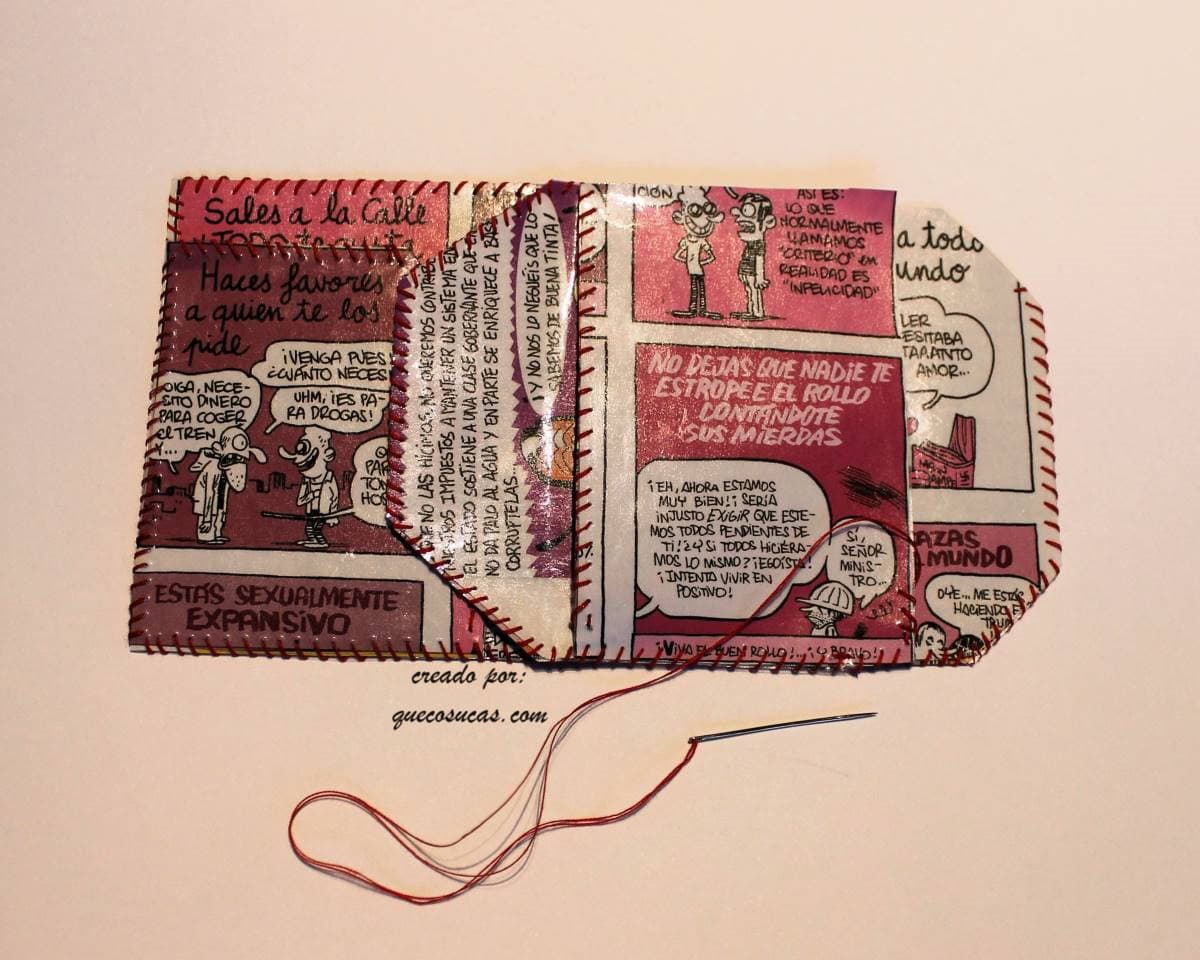 Sales a la Calle
Haces favores
a quien te los
pide
¡VENGA PUES!
¿CUÁNTO NECES
OIGA, NECE-
SITO DINERO
PARA COGER
el TREN
Y...
UHM, ¡¡ES PA-
RA DROGAS!
ESTÁS SEXUALMENTE
EXPANSIVO
QUE NO LAS HICIMOS. NO QUEREMOS CONTRIB
NUESTROS IMPUESTOS A MANTENER UN SISTEMA EN
EL ESTADO SOSTIENE A UNA CLASE GOBERNANTE QUE
NO DA PALO AL AGUA Y EN PARTE SE ENRIQUECE A BAS
CORRUPTELAS...
¡Y NO NOS LO NEGUÉIS QUE LO
SABEMOS DE BUENA TINTA!
CIÓN
ASÍ ES:
LO QUE
NORMALMENTE
LLAMAMOS
"CRITERIO" en
REALIDAD ES
"INFELICIDAD"
NO DEJAS QUE NADIE TE
ESTROPEE EL ROLLO
CONTÁNDOTE
SUS MIERDAS
¡EH, AHORA ESTAMOS
MUY BIEN! ¡SERÍA
INJUSTO EXIGIR QUE ESTE-
MOS TODOS PENDIENTES DE
TI! ¿Y SI TODOS HICIÉRA-
MOS LO MISMO? ¡EGOÍSTA!
¡INTENTA VIVIR EN
POSITIVO!
SÍ,
SEÑOR
MINIS-
TRO...
¡VIVA EL BUEN ROLLO!... ¡Y BRAVO!
a todo
undo
LER
ESITABA
TAAANTO
AMOR...
AZAS
MUNDO
OYE... ME ESTÁS
HACIENDO E
TRU
creado por:
quecosucas.com